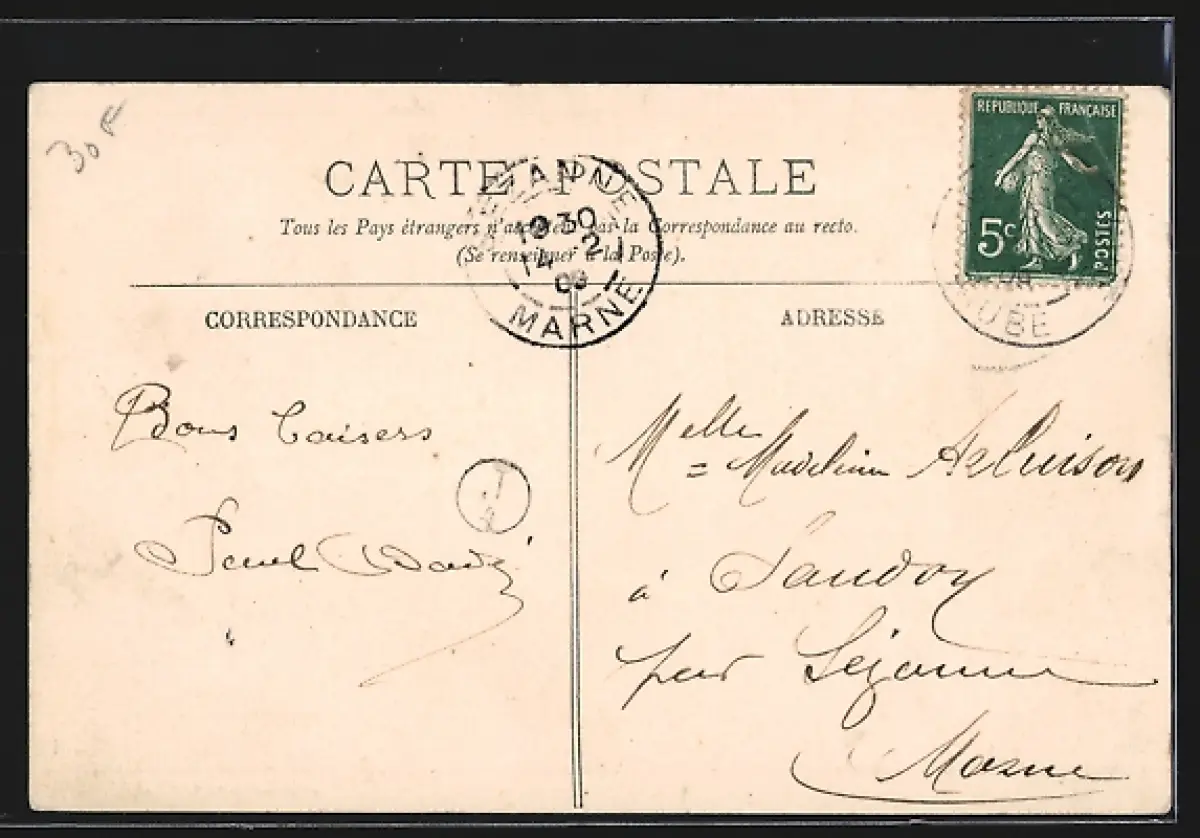 30F
CARTE POSTALE
Tous les Pays étrangers n'acceptent pas la Correspondance au recto.
(Se renseigner à la Poste).
REPUBLIQUE FRANÇAISE
5c
POSTES
AUBE
SEZANNE
1030
14 - 2
09
MARNE
CORRESPONDANCE
Bons baisers
Paul
ADRESSE
Melle Madeleine
à Saudoy
par Sézanne
Marne